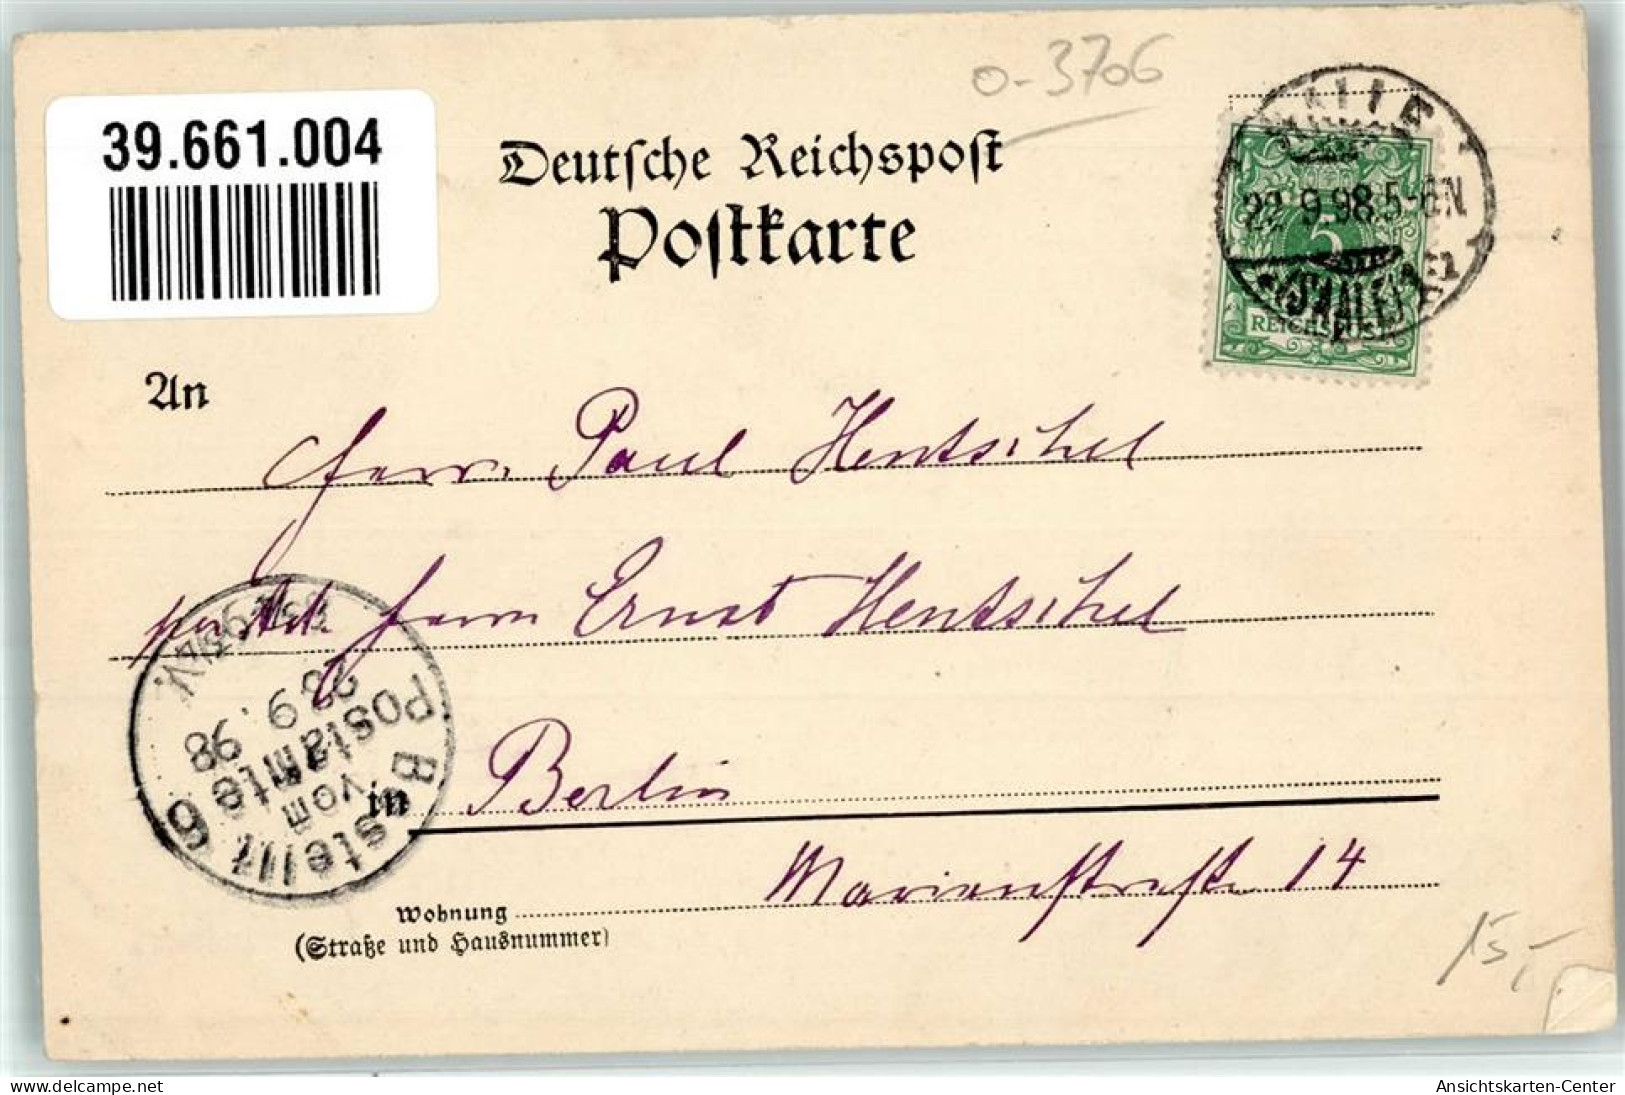 39.661.004
0-3706
Deutsche Reichspost
Postkarte
22.9.98.5-6N
(SAALE)
5
REICHSPOST
An
Herrn Paul Hentschel
per Ad. Herrn Ernst Hentschel
Bestellt
vom
Postamte 6
23 9. 98
in Berlin
Marienstraße 14
Wohnung
(Straße und Hausnummer)
15,-
delcampe.net
Ansichtskarten-Center